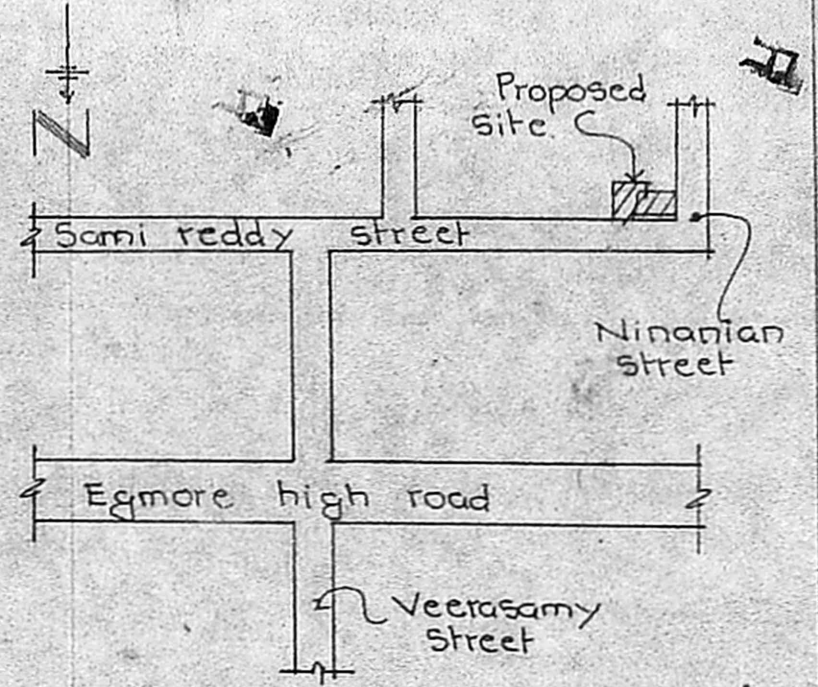 N
Proposed
site.
Sami reddy street
Ninanian
street
Egmore high road
Veerasamy
street